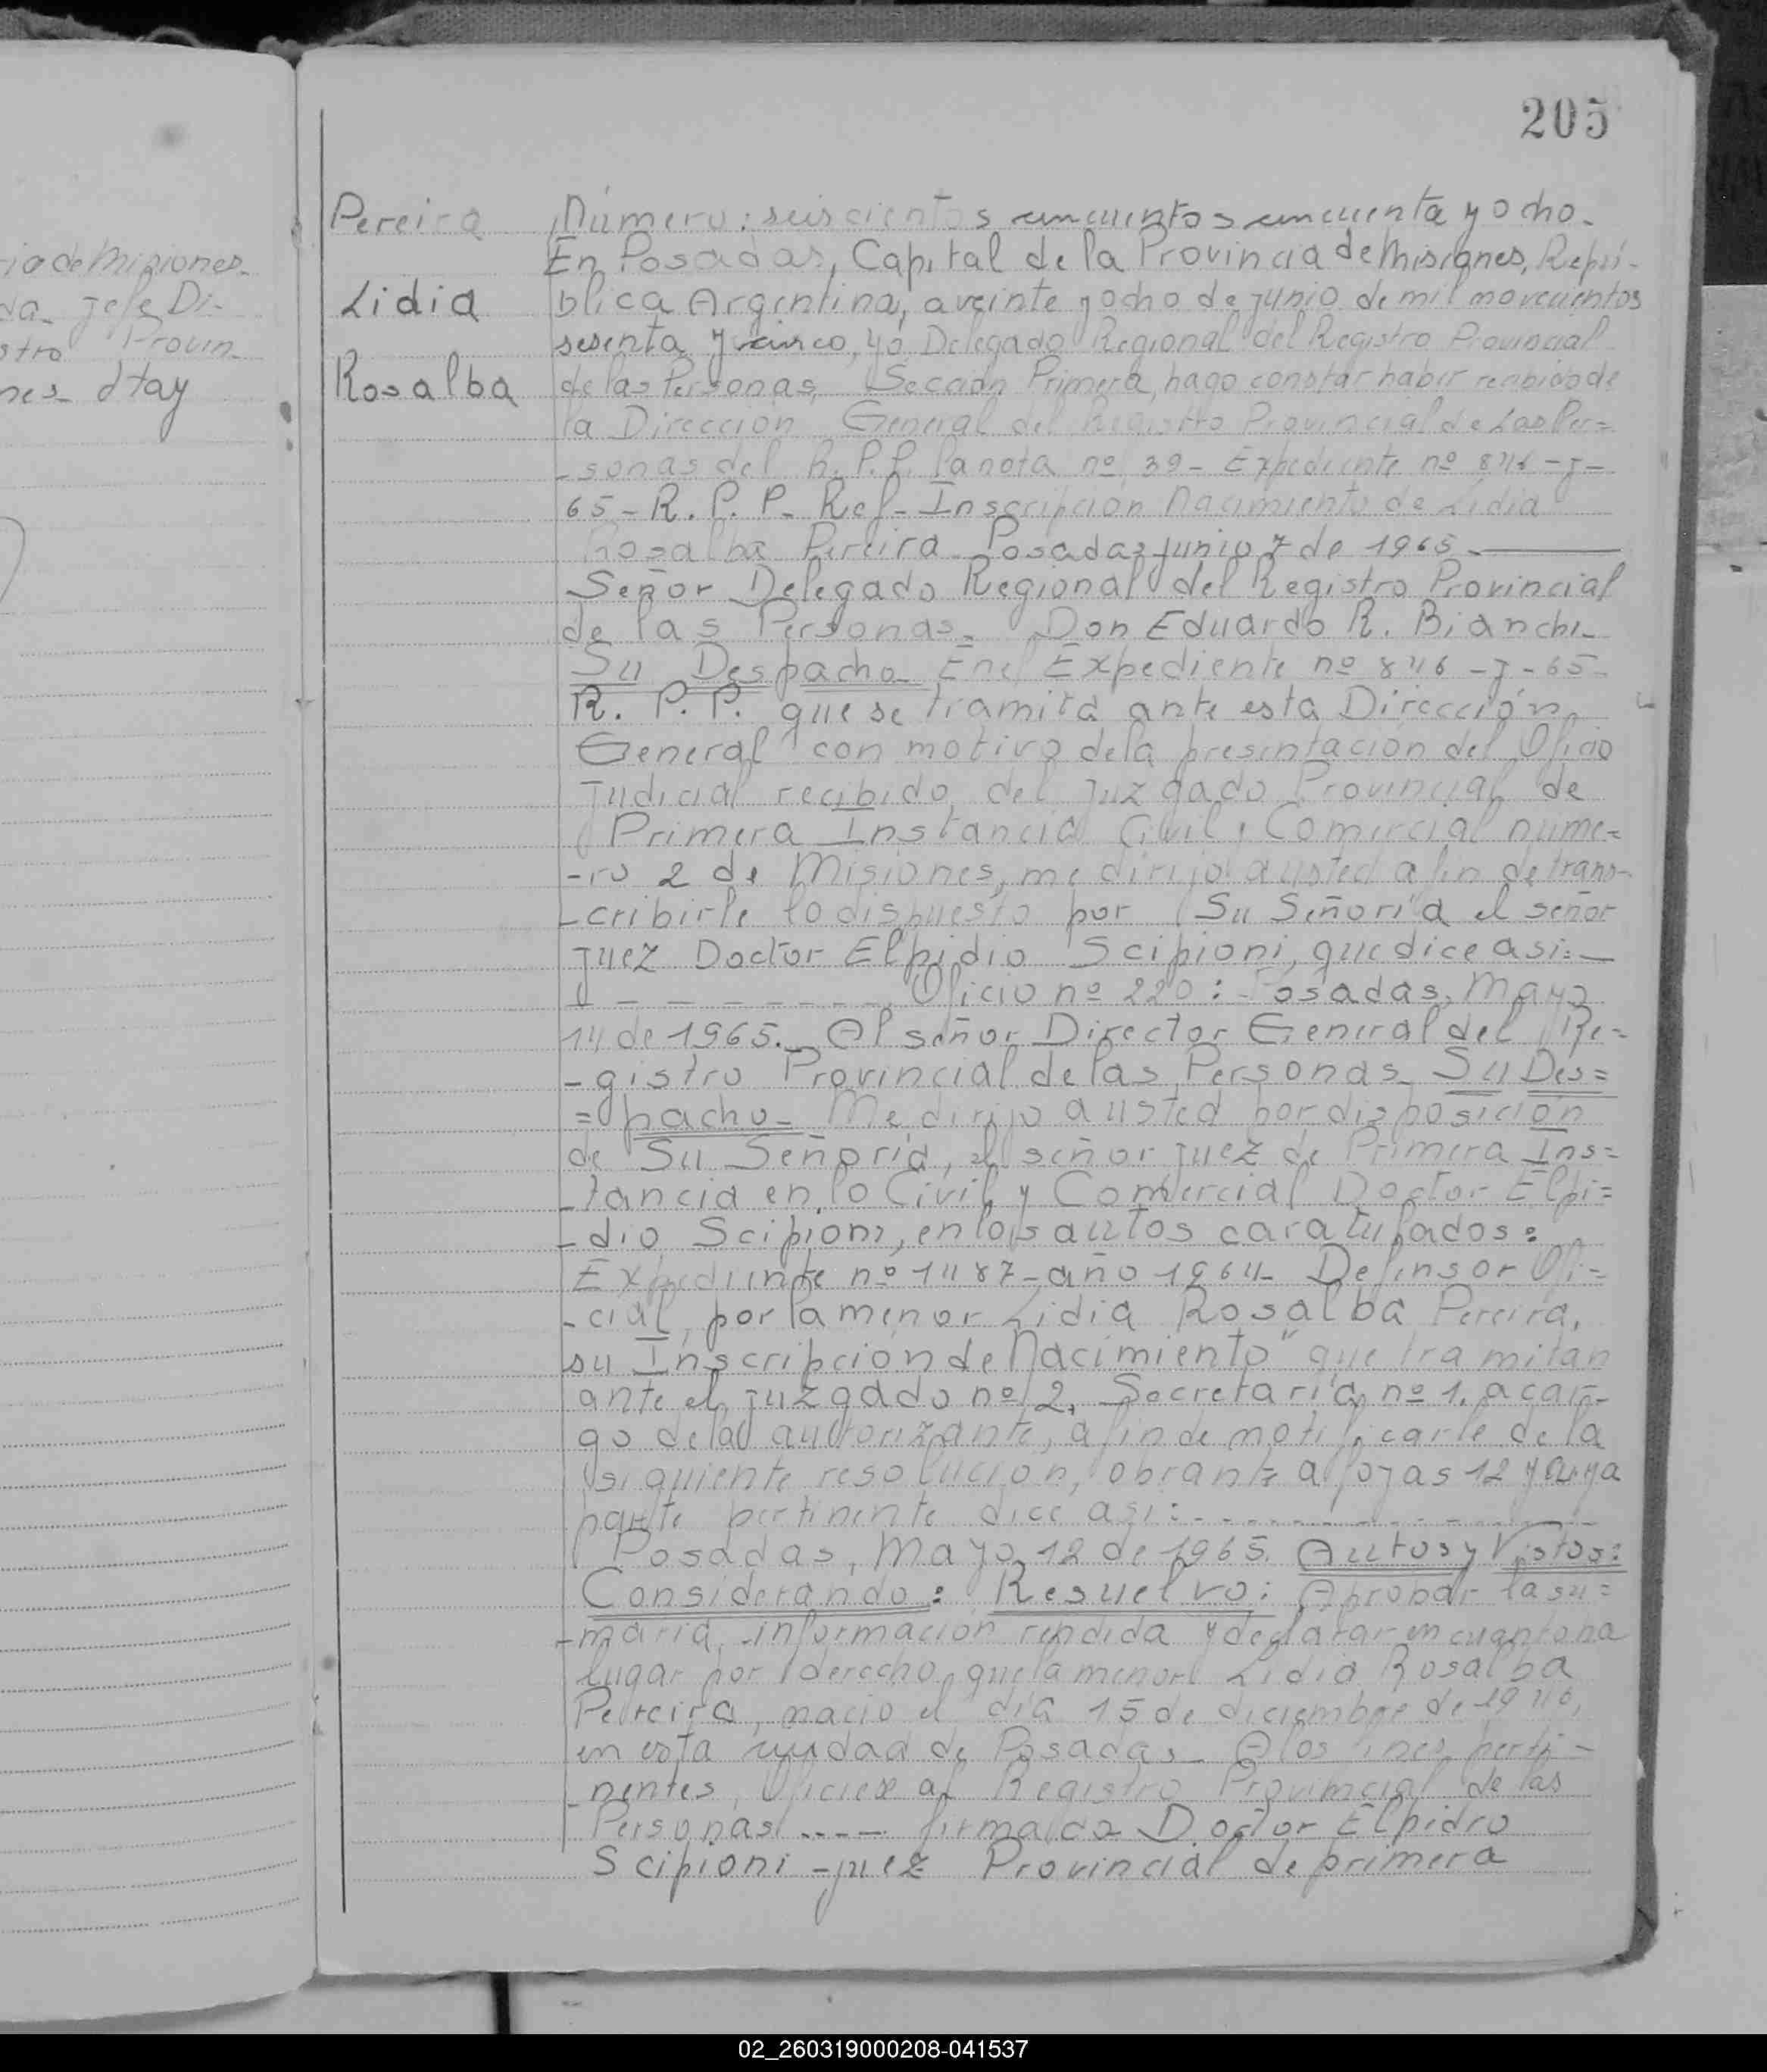 205
Pereira
Lidia
Rosalba
ia de Misiones.
da. Jefe Di-
stro Provin
nes. dtay
Número: seiscientos cincuentos cincuenta y ocho.
En Posadas, Capital de la Provincia de Misiones, Repú-
blica Argentina, a veinte y ocho de junio de mil novecientos
sesenta y cinco, yo Delegado Regional del Registro Provincial
de las Personas, Sección Primera, hago constar haber recibido de
la Dirección General del Registro Provincial de las Per=
-sonas del R.P.P. la nota nº 39- Expediente nº 846-J-
65- R.P.P. Ref- Inscripcion Nacimiento de Lidia
Rosalba Pereira Posadas junio 7 de 1965.
Señor Delegado Regional del Registro Provincial
de las Personas. Don Eduardo R. Bianchi.
Su Despacho. En el Expediente nº 846-J-65-
R. P. P. que se tramita ante esta Dirección
General con motivo de la presentación del Oficio
Judicial recibido del Juzgado Provincial de
Primera Instancia Civil, Comercial núme=
-ro 2 de Misiones, me dirijo a usted a fin de trans-
-cribirle lo dispuesto por Su Señoria el señor
Juez Doctor Elpidio Scipioni, que dice asi:
Oficio nº 220: Posadas, Mayo
14 de 1965. Al señor Director General del Re=
-gistro Provincial de las Personas. Su Des=
=pacho- Me dirijo a usted por disposición
de Su Señoría, el señor Juez de Primera Ins=
-tancia en lo Civil y Comercial Doctor Elpi=
-dio Scipioni, en los autos caratulados:
Expediente nº 1487- año 1964- Defensor Ofi=
-cial, por la menor Lidia Rosalba Pereira,
su Inscripción de Nacimiento" que tramitan
ante el Juzgado nº 2, Secretaría nº 1, a car-
go de la autorizante, a fin de notificarle de la
siguiente resolución, obrante a fojas 12 y cuya
parte pertinente dice asi:
Posadas, Mayo 12 de 1965. Autos y Vistos:
Considerando: Resuelvo: Aprobar la su=
-maria información rendida y declarar en cuanto ha
lugar por derecho, que la menor Lidia Rosalba
Pereira, nacio el día 15 de diciembre de 1946,
en esta ciudad de Posadas- A los fines perti-
-nentes, Oficiese al Registro Provincial de las
Personas .---- firmado Doctor Elpidio
Scipioni - juez Provincial de primera
02_260319000208-041537